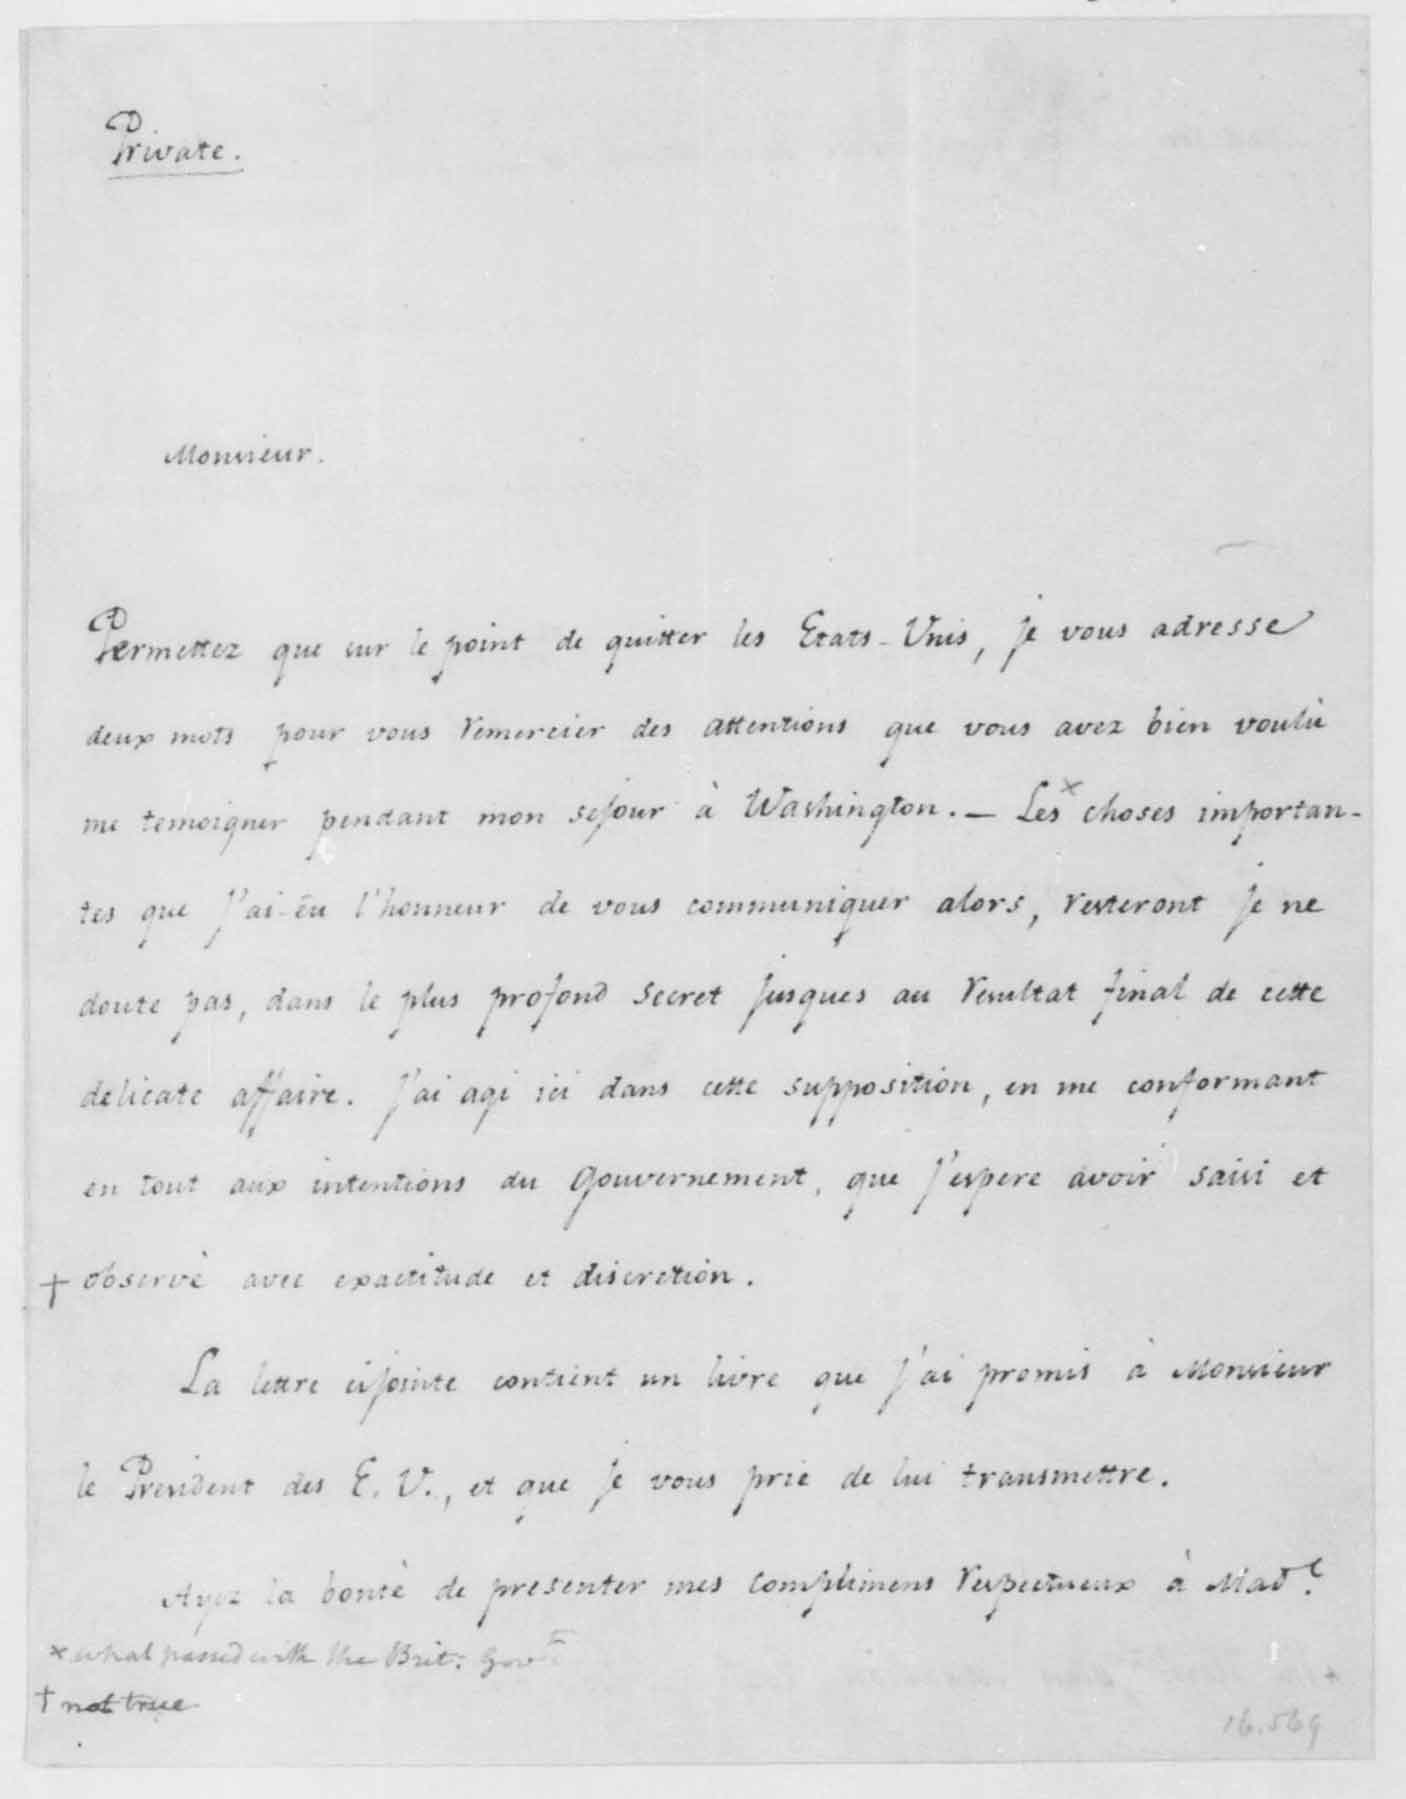 Private.
Monsieur.
Permettez que sur le point de quitter les Etats-Unis, je vous adresse
deux mots pour vous remercier des attentions que vous avez bien voulù
me temoigner pendant mon sejour à Washington. — Les × choses importan-
tes que j'ai eu l'honneur de vous communiquer alors, resteront je ne
doute pas, dans le plus profond secret jusques au resultat final de cette
delicate affaire. J'ai agi ici dans cette supposition, en me conformant
en tout aux intentions du Gouvernement, que j'espere avoir saisi et
† observé avec exactitude et discretion.
La lettre cijointe contient un livre que j'ai promis à Monsieur
le President des E. U., et que je vous prie de lui transmettre.
Ayez la bonté de presenter mes complimens respectueux à Mad.e
× what passed with the Brit: Govt
† not true
16.569